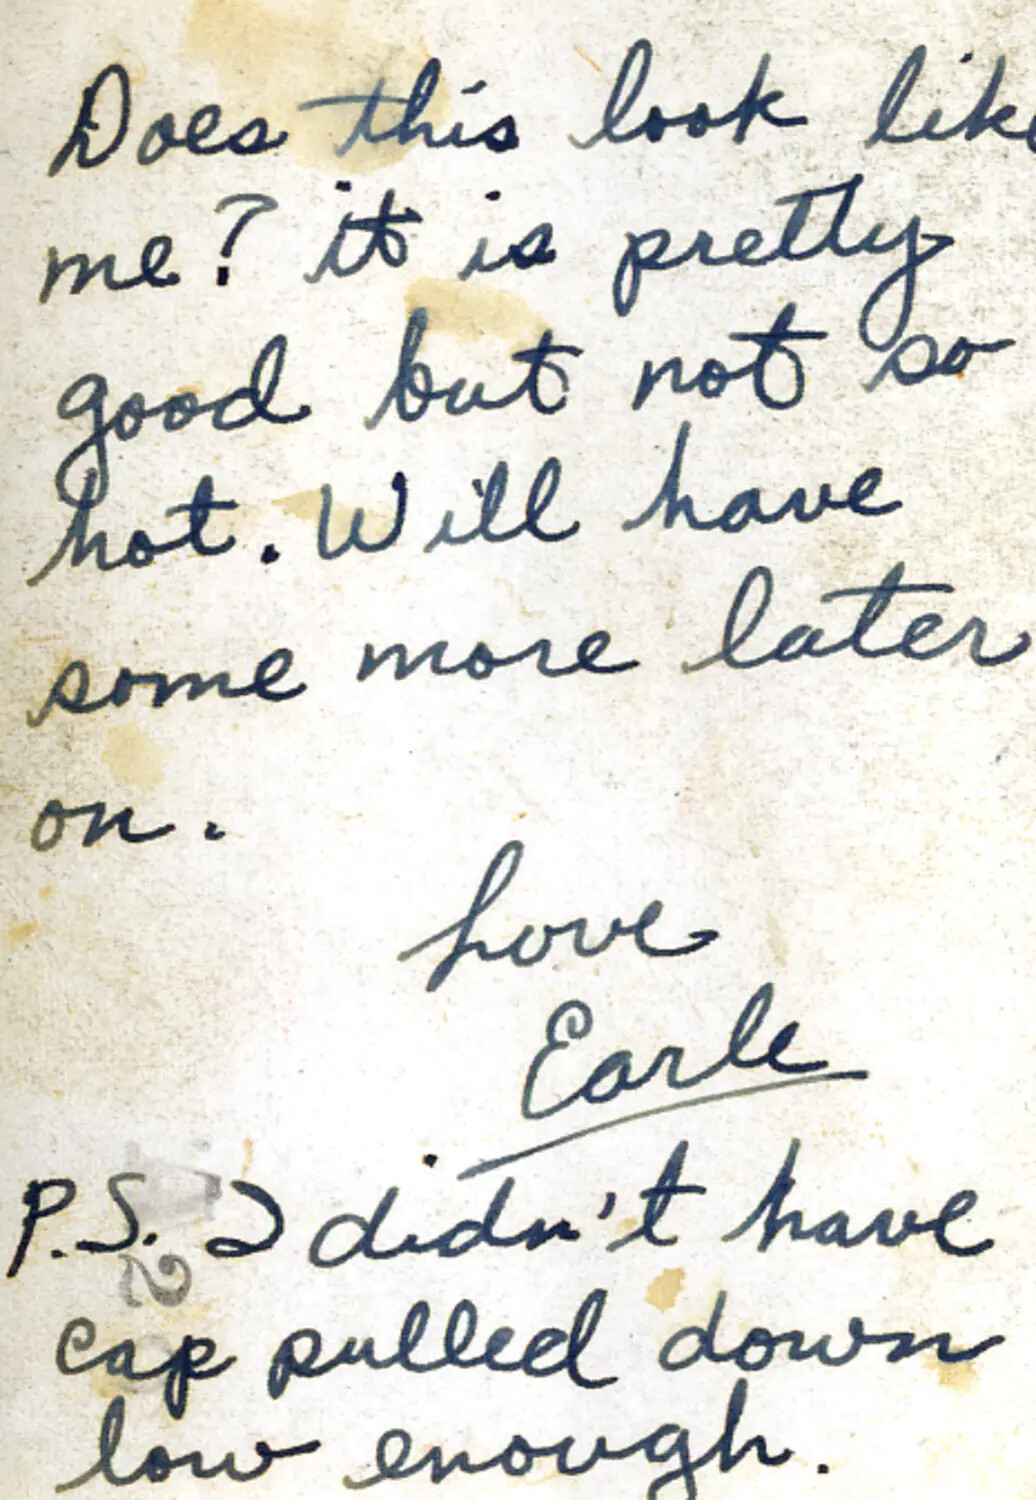 Does this look like
me? it is pretty
good but not so
hot. Will have
some more later
on.
Love
Earle
P.S. I didn't have
cap pulled down
low enough.